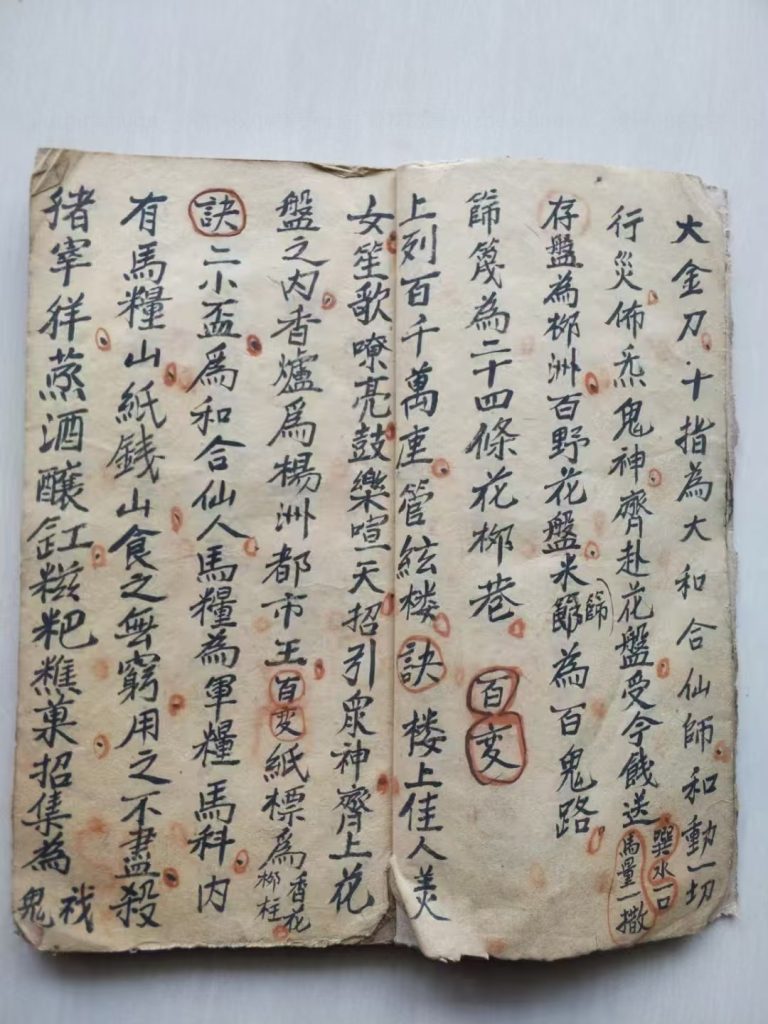 大金刀十指為大和合仙師和動一切
行災佈炁鬼神齊赴花盤受令餞送噀水一口馬量一撒
存盤為柳洲百野花盤米篩為百鬼路
篩篾為二十四條花柳巷百变
上列百千萬座管絃楼訣楼上佳人美
女笙歌嘹亮鼓樂喧天招引眾神齊上花
盤之内香爐爲楊洲都市王百变紙標爲香花柳柱
訣二小盃爲和合仙人馬糧為軍糧馬科内
有馬糧山紙錢山食之無窮用之不盡殺
猪宰徉蒸酒釀缸糍粑樵菓招集為鬼